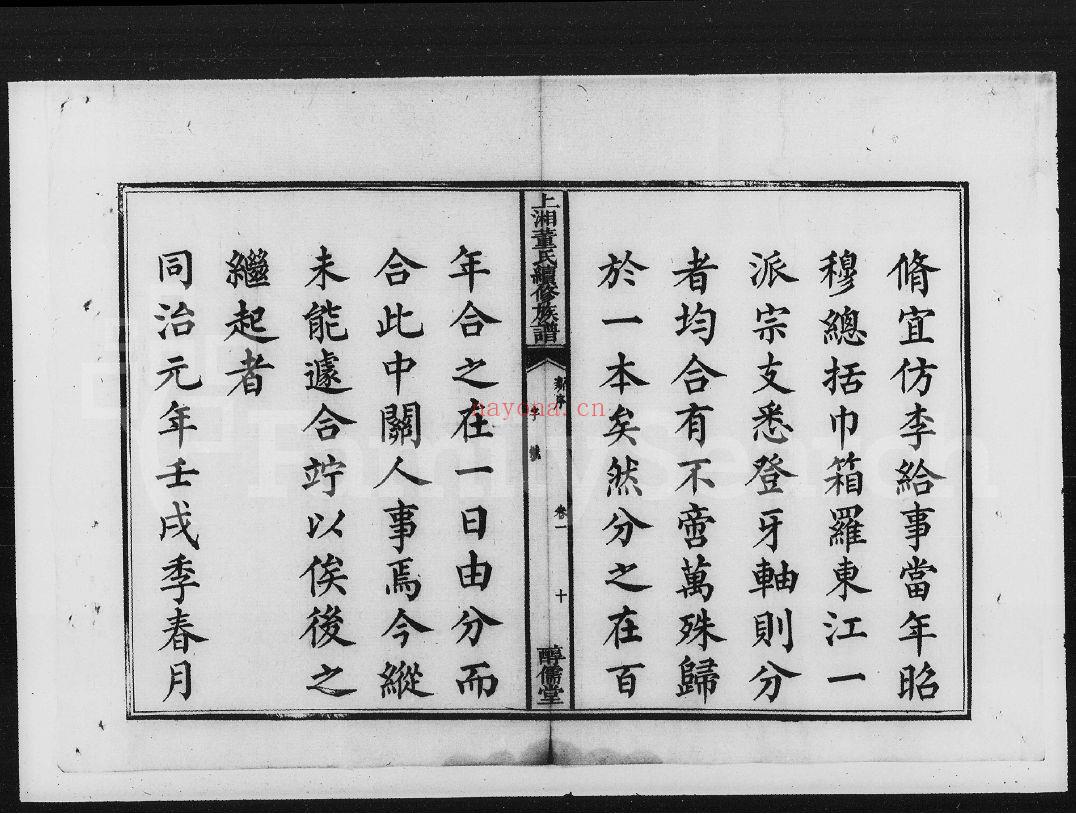 脩宜仿李給事當年昭
穆總括巾箱羅東江一
派宗支悉登牙軸則分
者均合有不啻萬殊歸
於一本矣然分之在百
上湘董氏續修族譜
新序 卷一 十
醇儒堂
年合之在一日由分而
合此中關人事焉今縱
未能遽合竚以俟後之
繼起者
同治元年壬戌季春月
nayona.cn
FamilySearch